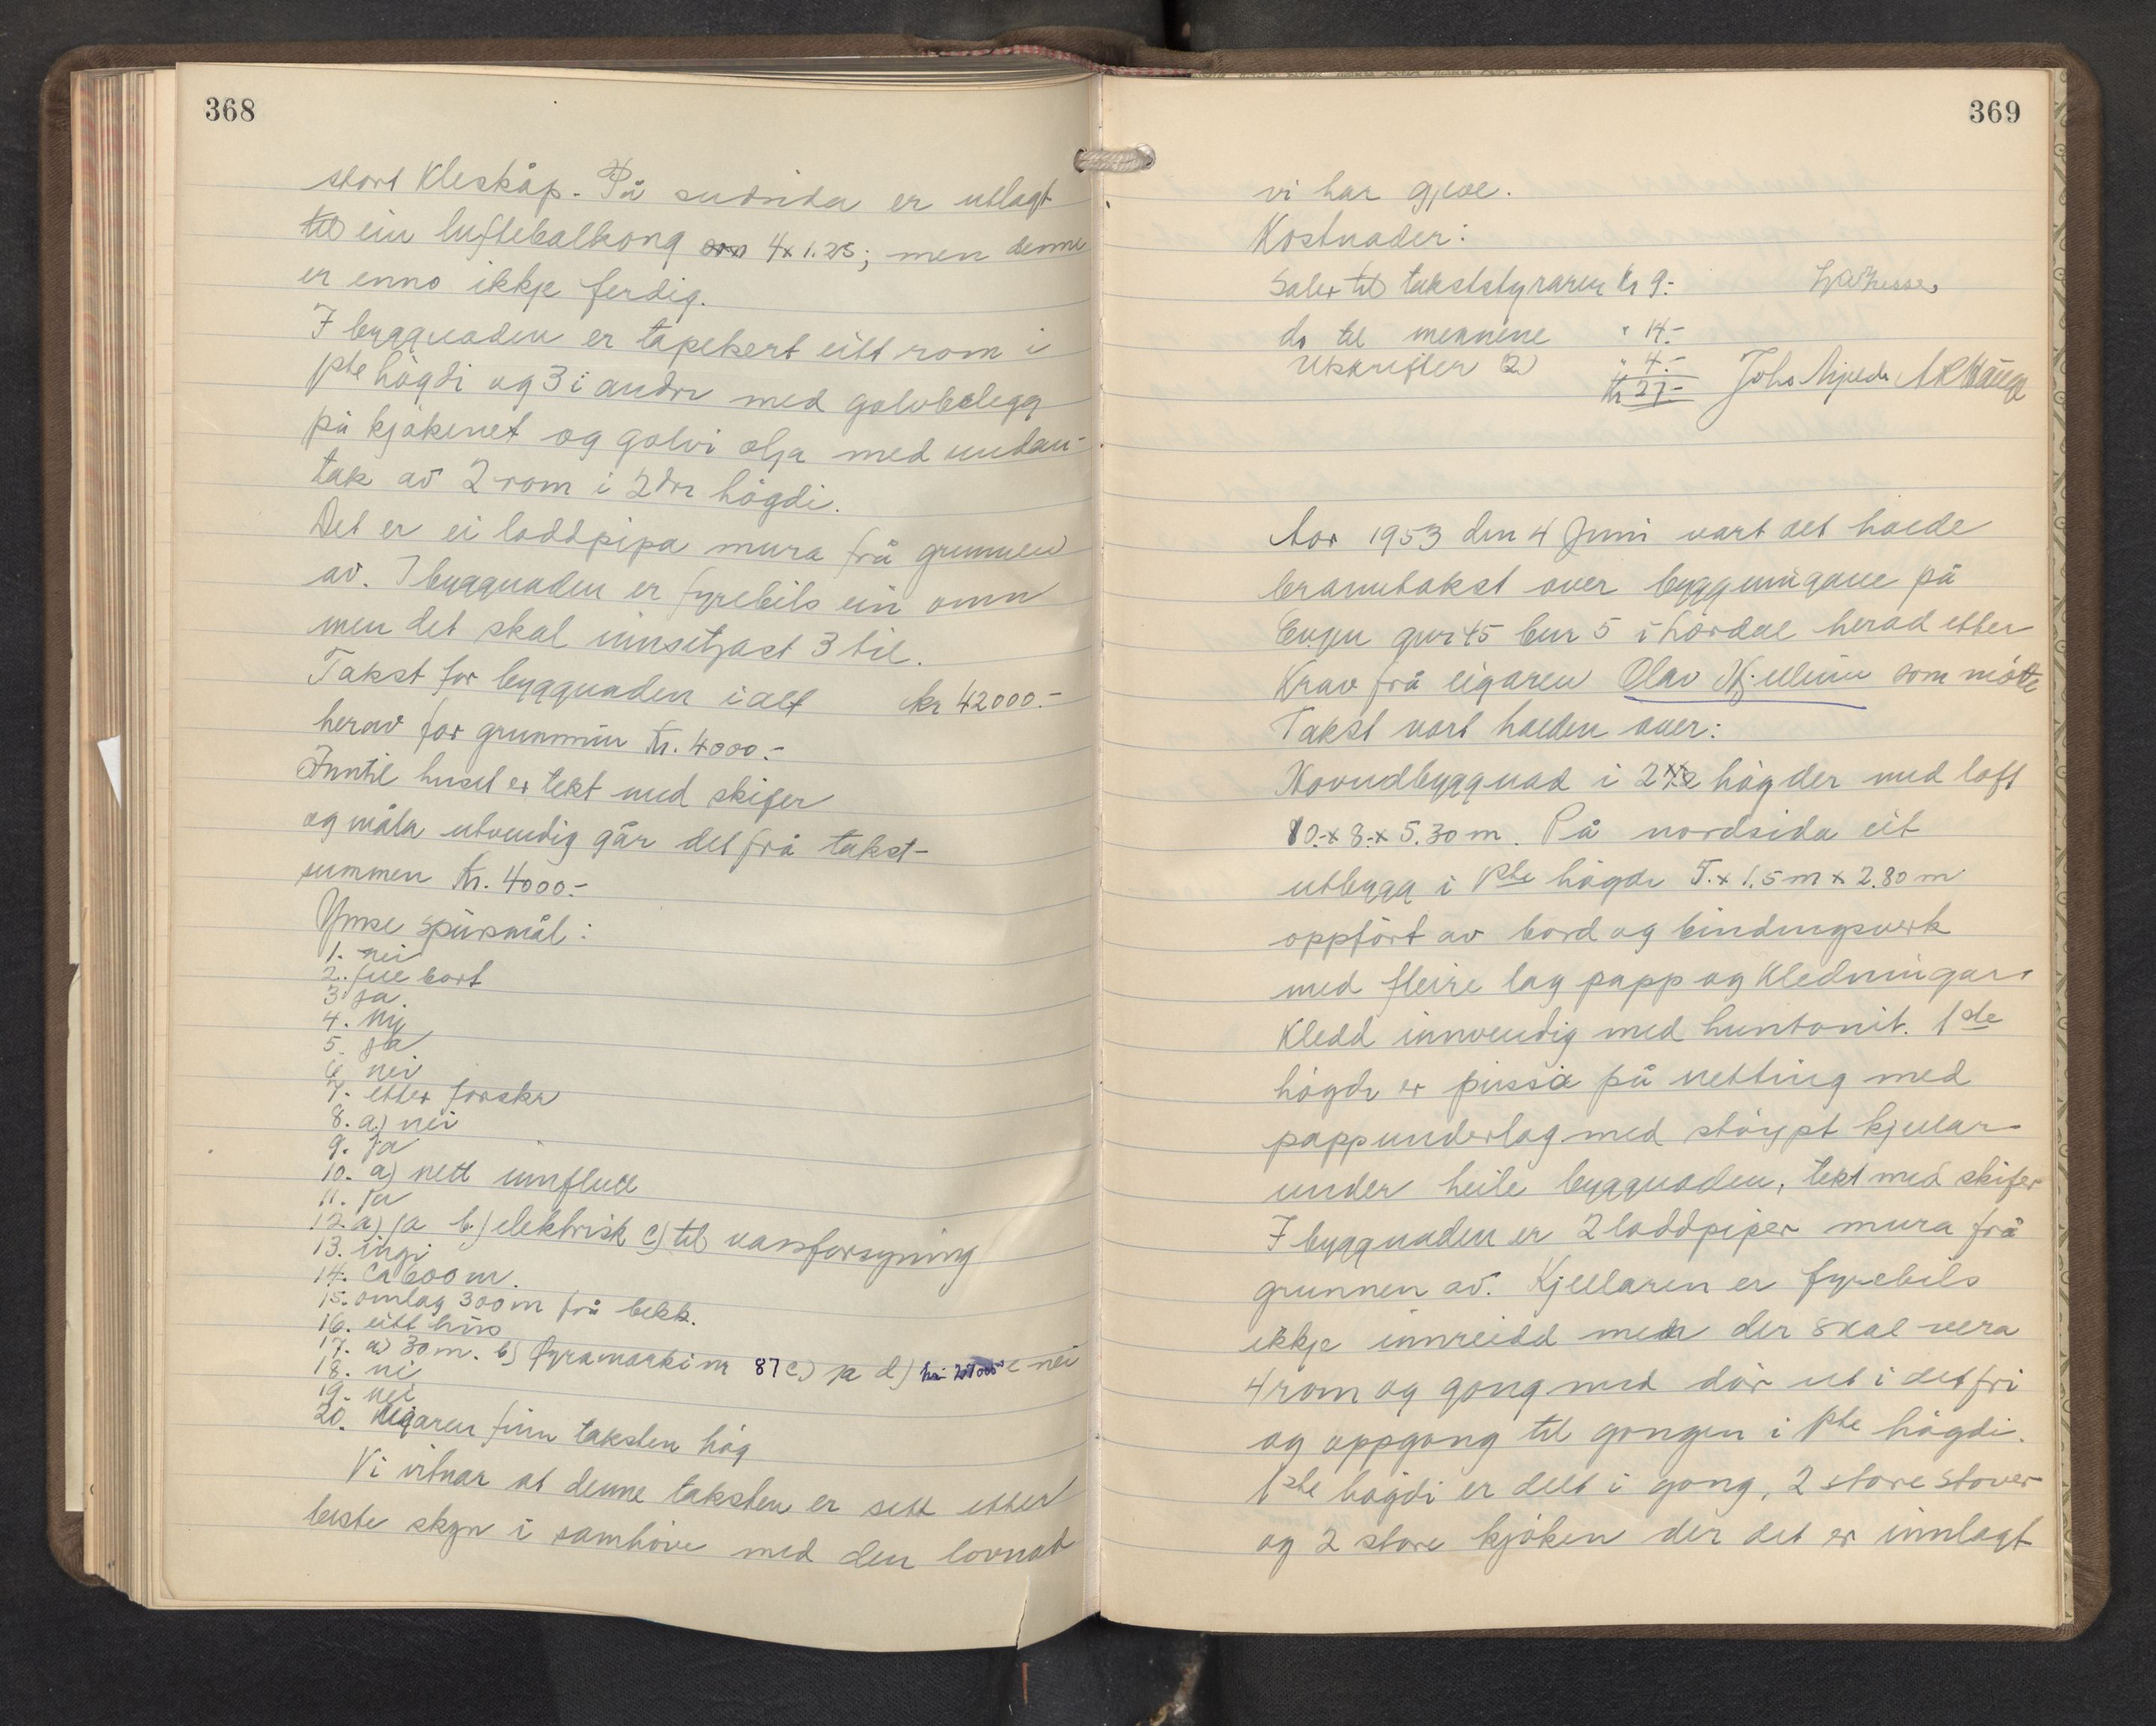 368
stort Kleskåp. På sudsida er utlagt
til ein luftebalkong 4x1.25; men denne
er enno ikkje ferdig.
I byggnaden er tapekert eitt rom i
1ste högdi og 3 i andre med golvbelegg
på kjøkenet og golvi olja med undan-
tak av 2 rom i 2dre högdi.
Det er ei loddpipa mura frå grunnen
av. I byggnaden er fyrebils ein omn
men det skal innsetjast 3 til.
Takst for byggnaden i alt kr 42000.-
herav for grunnmur Kr. 4000.-
Inntil huset er tekt med skifer
og måla utvendig går det frå takst-
summen Kr. 4000.-
Ymse spursmål:
1. nei
2. fell bort
3 ja.
4. ny
5. ja
6 nei
7. etter forskr
8. a.) nei
9. ja
10. a) nett
11. ja
12. a) ja b.) elektrisk c) til vassforsyning
13. ingi
14. Ca 600 m.
15. omlag 300 m frå bekk.
16. eitt hus
17. a) 30 m. b) fyramarki nr 87 c) ja d) e nei
18. nei
19. nei
20. Eigaren finn taksten høg
Vi vitnar at denne taksten er sett etter
beste skyn i samhøve med den lovnad
369
vi har gjeve.
Kostnader:
Saler til takststyraren kr 9.-
do til mennene " 14.-
Utskrifter (2) " 4.-
Kr 27.-
Aar 1953 den 4 Juni vart det halde
branntakst over byggningane på
gnr 45 bnr 5 i herad etter
Krav frå eigaren Olav som møtte
Takst vart halden over:
Hovudbyggnad i 2 högder med loft
10.- x 8.- x 5.30 m. På nordsida eit
utbygg i 1ste högdi x 1.5 m x 2.80 m
oppført av bord og bindingsverk
med fleire lag papp og Kledningar.
Kledd innvendig med huntonit. 1ste
högdi er pussa på netting med
pappunderlag med støypt kjellar
under heile byggnaden, tekt med skifer
I byggnaden er 2 loddpiper mura frå
grunnen av. Kjellaren er fyrebils
ikkje innreidd men der skal vera
4 rom og gong med dör ut i det fri
og oppgong til gongen i 1ste högdi.
1ste högdi er delt i gong, 2 store stover
og 2 store kjøken der det er innlagt